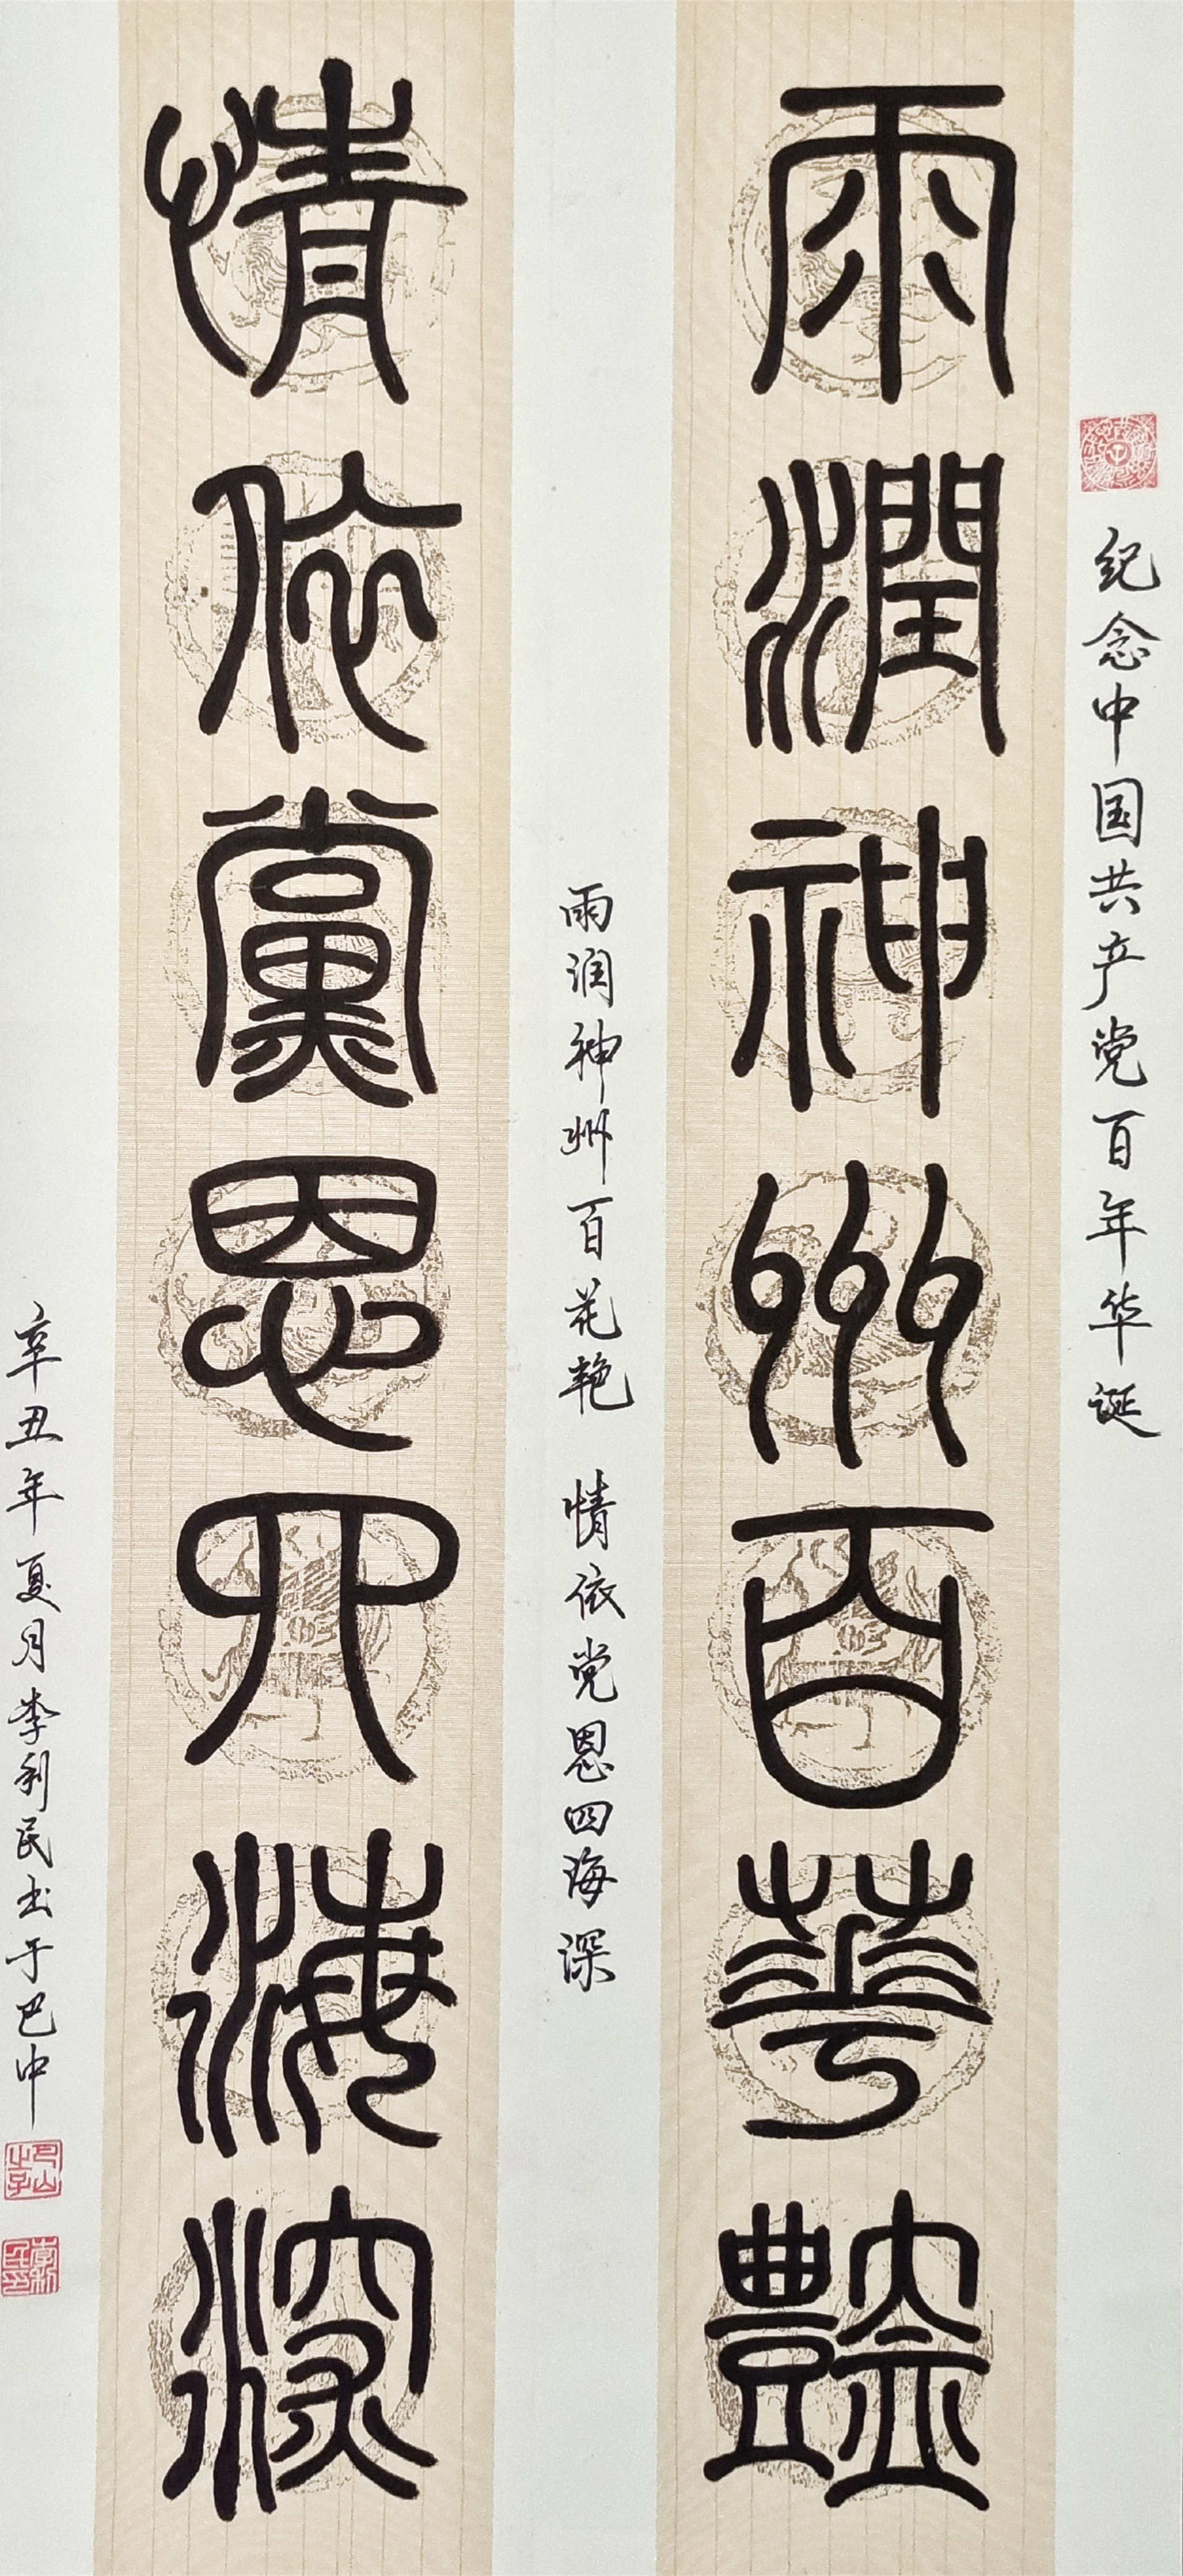 纪念中国共产党百年华诞
雨潤神州百華豔
雨润神州百花艳 情依党恩四海深
情依黨恩四海深
辛丑年夏月李利民书于巴中